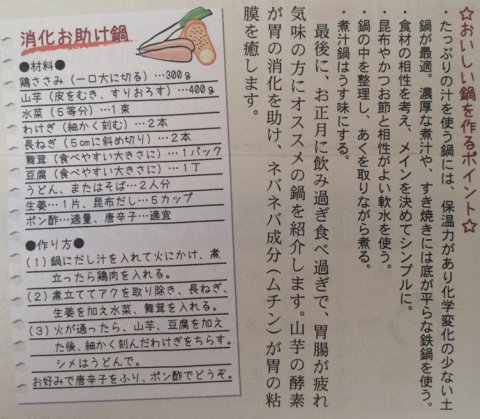 ☆おいしい鍋を作るポイント☆
・たっぷりの汁を使う鍋には、保温力があり化学変化の少ない土
鍋が最適。濃厚な煮汁や、すき焼きには底が平らな鉄鍋を使う。
・食材の相性を考え、メインを決めてシンプルに。
・昆布やかつお節と相性がよい軟水を使う。
・鍋の中を整理し、あくを取りながら煮る。
・煮汁鍋はうす味にする。
最後に、お正月に飲み過ぎ食べ過ぎで、胃腸が疲れ
気味の方にオススメの鍋を紹介します。山芋の酵素
が胃の消化を助け、ネバネバ成分（ムチン）が胃の粘
膜を癒します。
消化お助け鍋
●材料●
鶏ささみ（一口大に切る）…300g
山芋（皮をむき、すりおろす）…400g
水菜（５等分）…１束
わけぎ（細かく刻む）…２本
長ねぎ（５cmに斜め切り）…２本
舞茸（食べやすい大きさに）…１パック
豆腐（食べやすい大きさに）…１丁
うどん、またはそば…２人分
生姜…１片、昆布だし…５カップ
ポン酢…適量、唐辛子…適宜
●作り方●
（１）鍋にだし汁を入れて火にかけ、煮
立ったら鶏肉を入れる。
（２）煮立ててアクを取り除き、長ねぎ、
生姜を加え水菜、舞茸を入れる。
（３）火が通ったら、山芋、豆腐を加え
た後、細かく刻んだわけぎをちらす。
シメはうどんで。
お好みで唐辛子をふり、ポン酢でどうぞ。